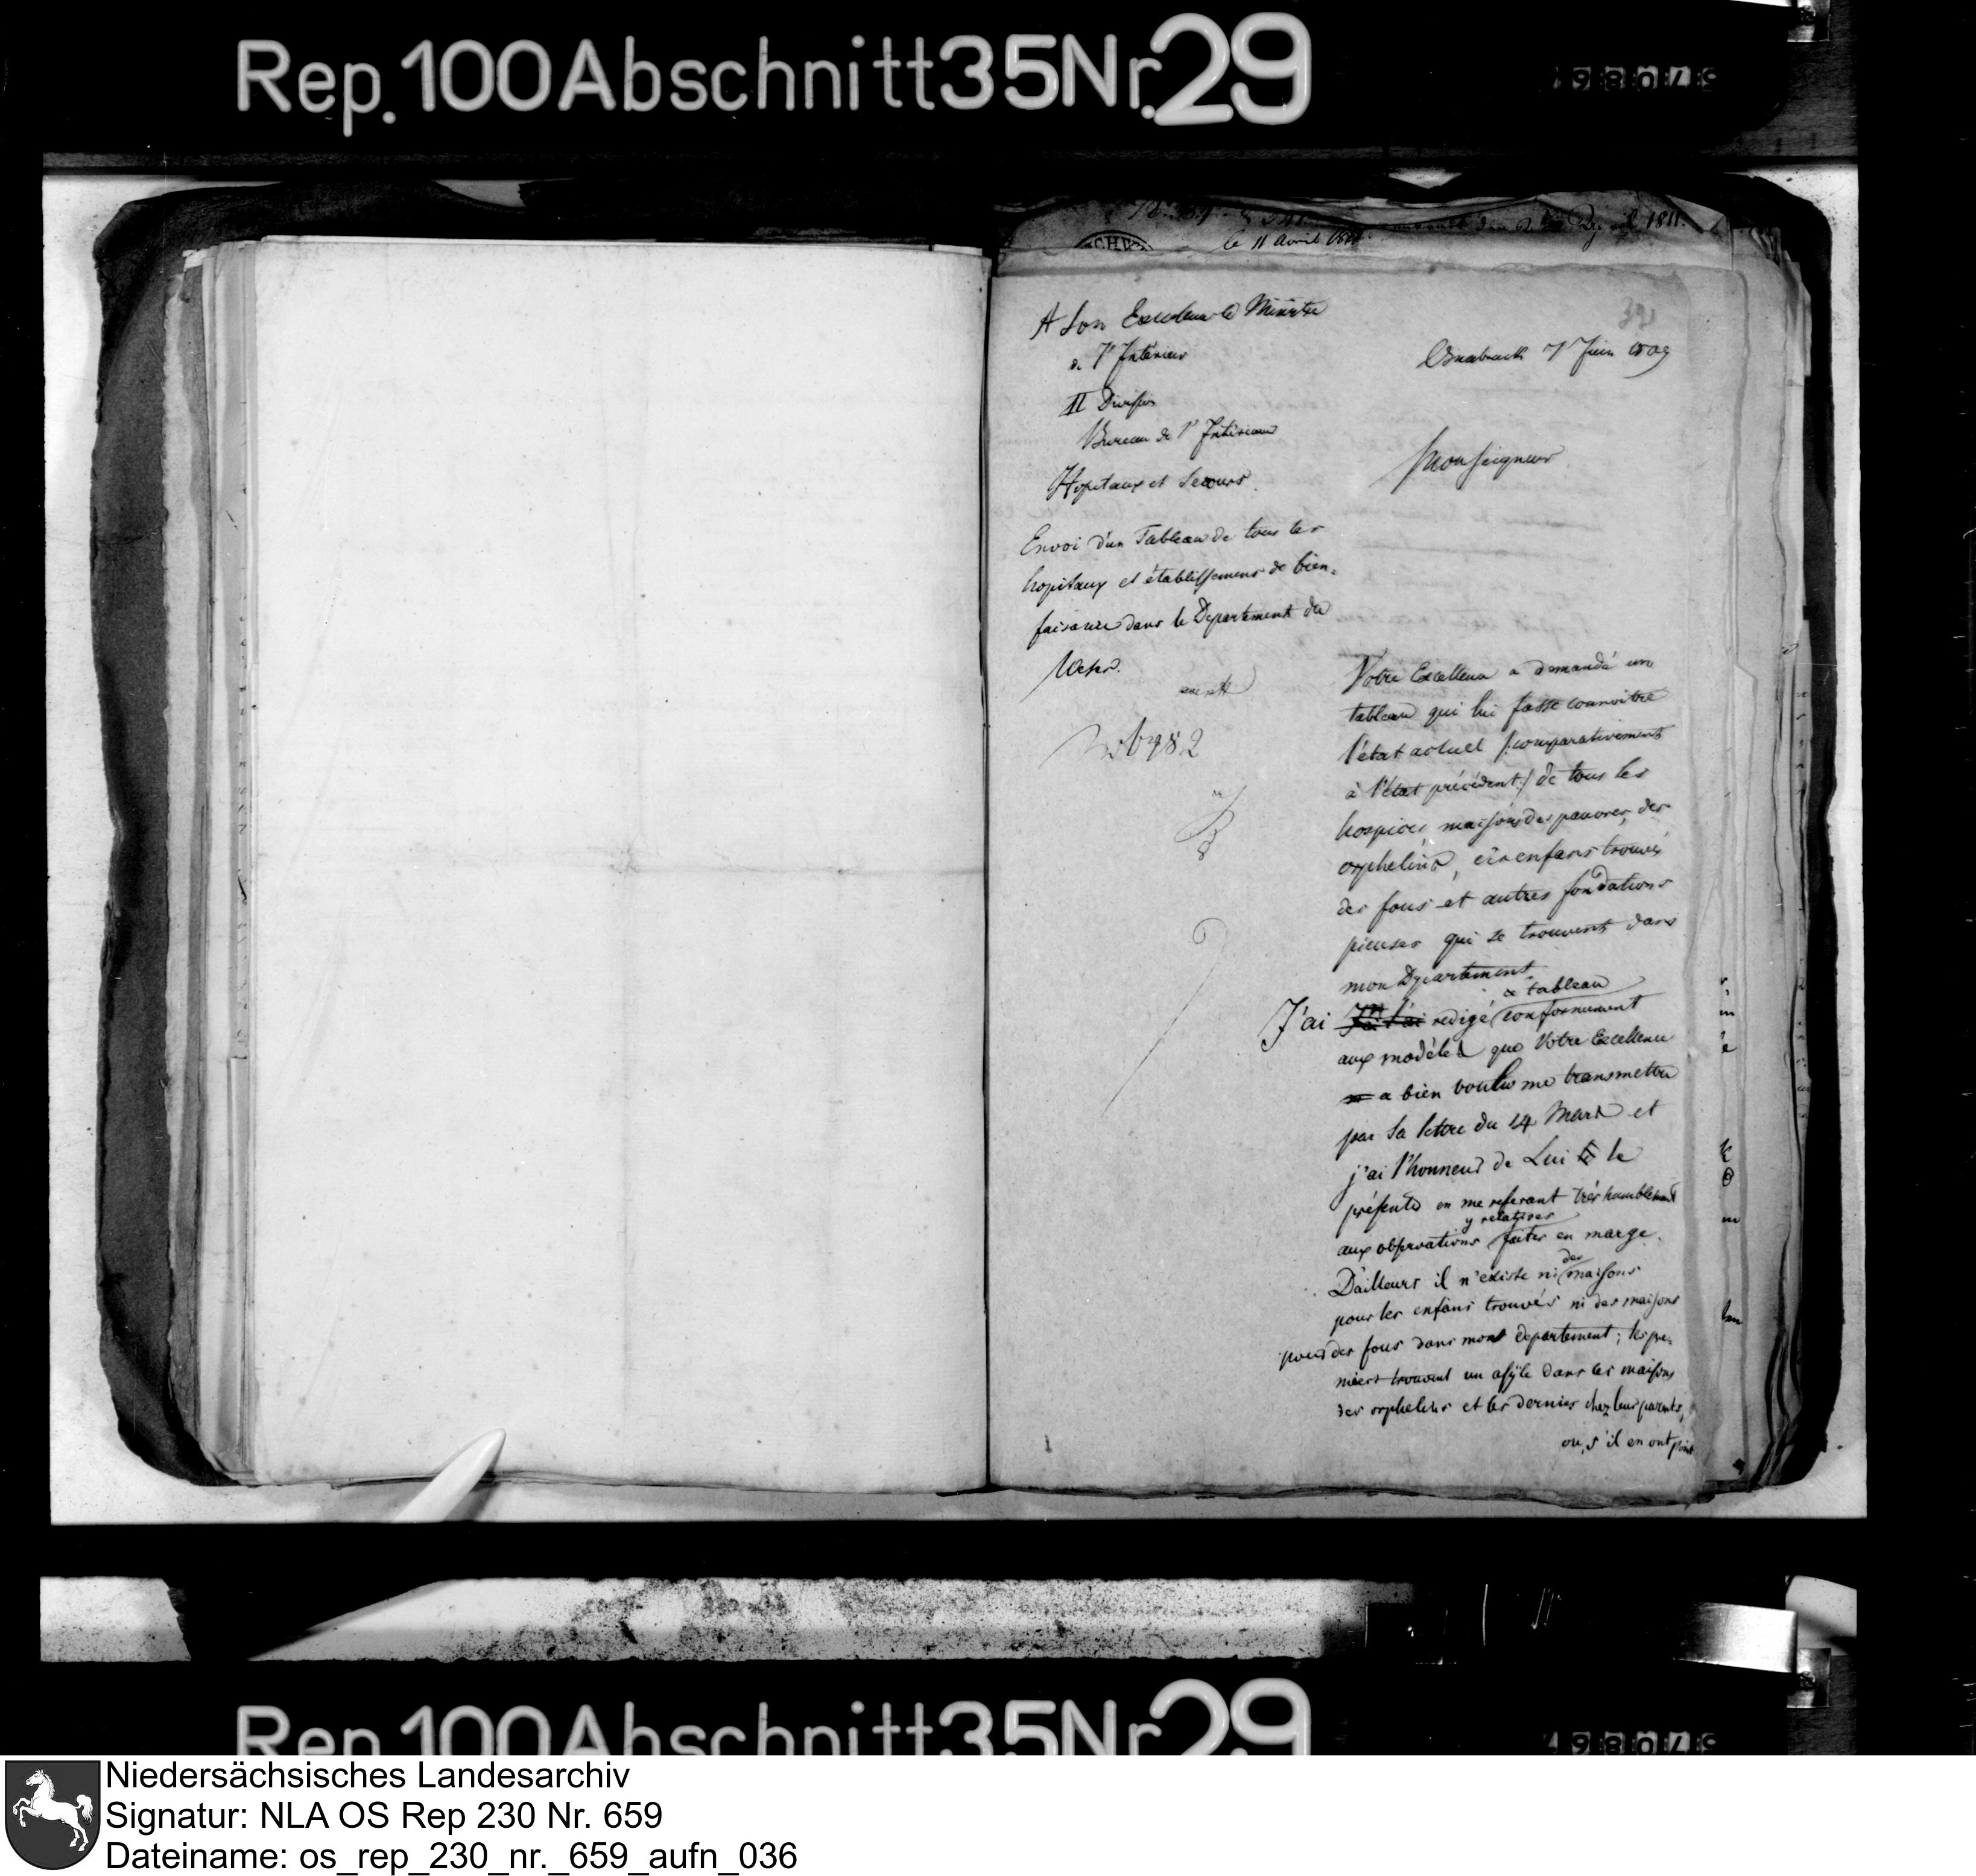 Rep. 100 Abschnitt 35 Nr. 29
le 11 Avril
1811.
A Son Excellence le Ministre
de l'Intérieur
II Division
Bureau de l'Intérieur
Hopitaux et Secours.
Envoi d'un Tableau de tous les
hopitaux et établissemens de bien-
faisance dans le Departement du
Weser.
Osnabruck 7 Juin 1809
Monseigneur
Votre Excellence a demandé un
tableau qui lui fasse connoitre
l'état actuel /:comparativement
à l'état précédent:/ de tous les
hospices, maisons des pauvres, des
orphelins, des enfans trouvés
des fous et autres fondations
pieuses qui se trouvent dans
mon Departement.
J'ai redigé ce tableau conformement
aux modèles que Votre Excellence
a bien voulu me transmettre
par Sa lettre du 14 Mars et
j'ai l'honneur de Lui le
présenter en me referant très humblement
aux observations y relatives faites en marge.
D'ailleurs il n'existe ni des maisons
pour les enfans trouvés ni des maisons
pour des fous dans mon departement; les pre-
miers trouvent un asÿle dans les maisons
des orphelins et les derniers chez leurs parents,
ou, s'il en ont point
Rep. 100 Abschnitt 35 Nr. 29
Niedersächsisches Landesarchiv
Signatur: NLA OS Rep 230 Nr. 659
Dateiname: os_rep_230_nr._659_aufn_036